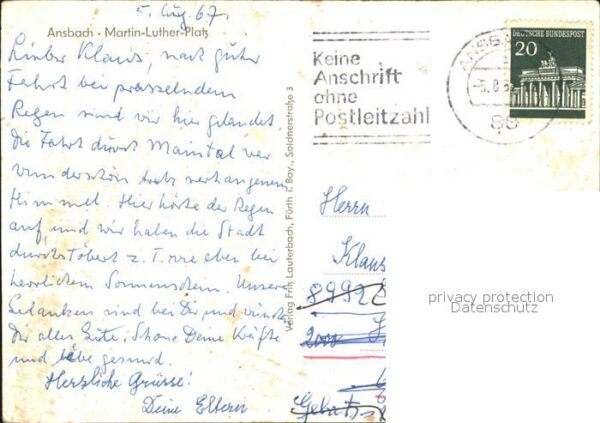 5. Aug. 67.
Ansbach · Martin-Luther-Platz
Lieber Klaus, nach guter
Fahrt bei prasselndem
Regen sind wir hier gelandet.
Die Fahrt durchs Maintal war
wunderschön trotz verhangenem
Himmel. Hier hörte der Regen
auf, und wir haben die Stadt
durchstöbert z. T. wie eben bei
herrlichem Sonnenschein. Unsere
Gedanken sind bei Dir und wünschen
Dir alles Gute. Schone Deine Kräfte
und lebe gesund.
Herzliche Grüsse!
Deine Eltern
Verlag Fritz Lauterbach, Fürth i. Bay., Soldnerstraße 3
Keine
Anschrift
ohne
Postleitzahl
ANSB
-5.8.
88
DEUTSCHE BUNDESPOST
20
Herrn
Klaus
8992
2000 H
privacy protection
Datenschutz